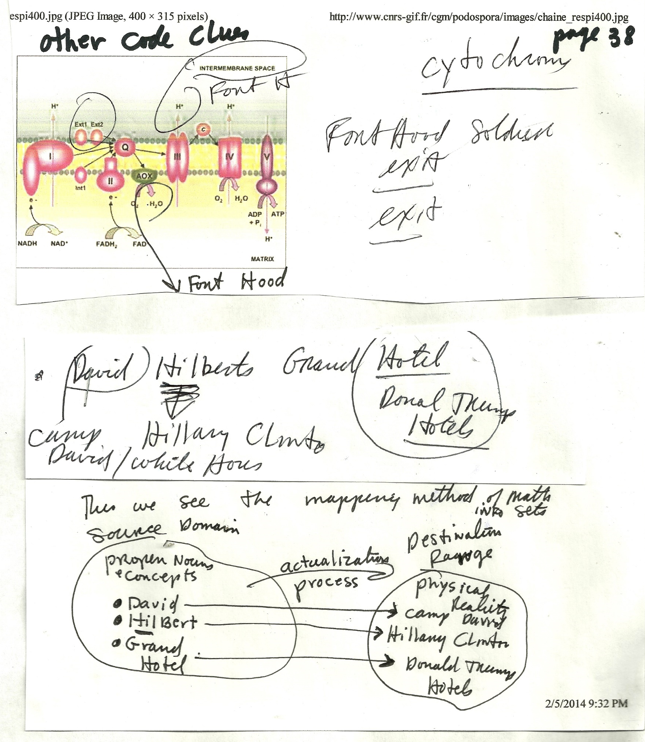 respi400.jpg (JPEG Image, 400 × 315 pixels)
http://www.cnrs-gif.fr/cgm/podospora/images/chaine_respi400.jpg
other code Clues
page 38
cytochrom
INTERMEMBRANE SPACE
Font H
H+ H+ H+
Ext1 Ext2
Q
c
I
III
IV
V
Int1
II
AOX
e-
e-
O2 H2O
O2 H2O
ADP + Pi
ATP
H+
NADH NAD+
FADH2 FAD
MATRIX
Font Hood
Font Hood Soldier
exit
exit
David Hilberts Grand Hotel
Donal Trump
Hotels
camp Hillary Clinto
David/White Hous
Thus we see the mapping method of math
into sets
Source Domain
Destination
Range
proper Nouns
e concepts
actualization
process
physical
Reality
• David
camp David
• HilBert
Hillary Clinton
• Grand
Hotel
Donald Trump
Hotels
2/5/2014 9:32 PM